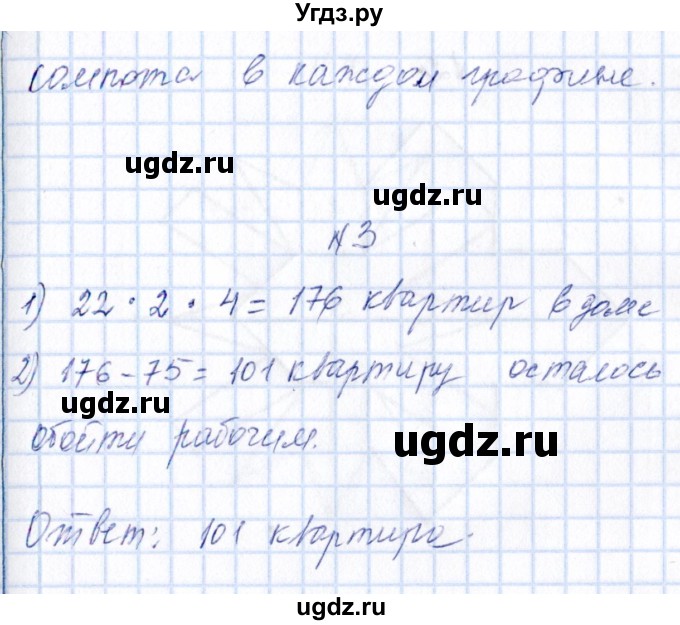 Угдз.ру
компота в каждом графине.
ugdz.ru ugdz.ru
N3
1) 22 · 2 · 4 = 176 квартир в доме
ugdz.ru ugdz.ru
2) 176 - 75 = 101 квартиру осталось
обойти рабочим.
ugdz.ru
Ответ: 101 квартира.
ugdz.ru ugdz.ru
ugdz.ru